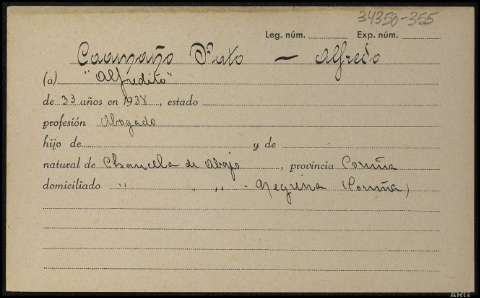 34350-355
Leg. núm. Exp. núm.
Caamaño Prato — Alfredo
(a) "Alfredito"
de 33 años en 1938, estado
profesión Abogado
hijo de y de
natural de de Abajo, provincia Coruña
domiciliado " " " - Negreira (Coruña)